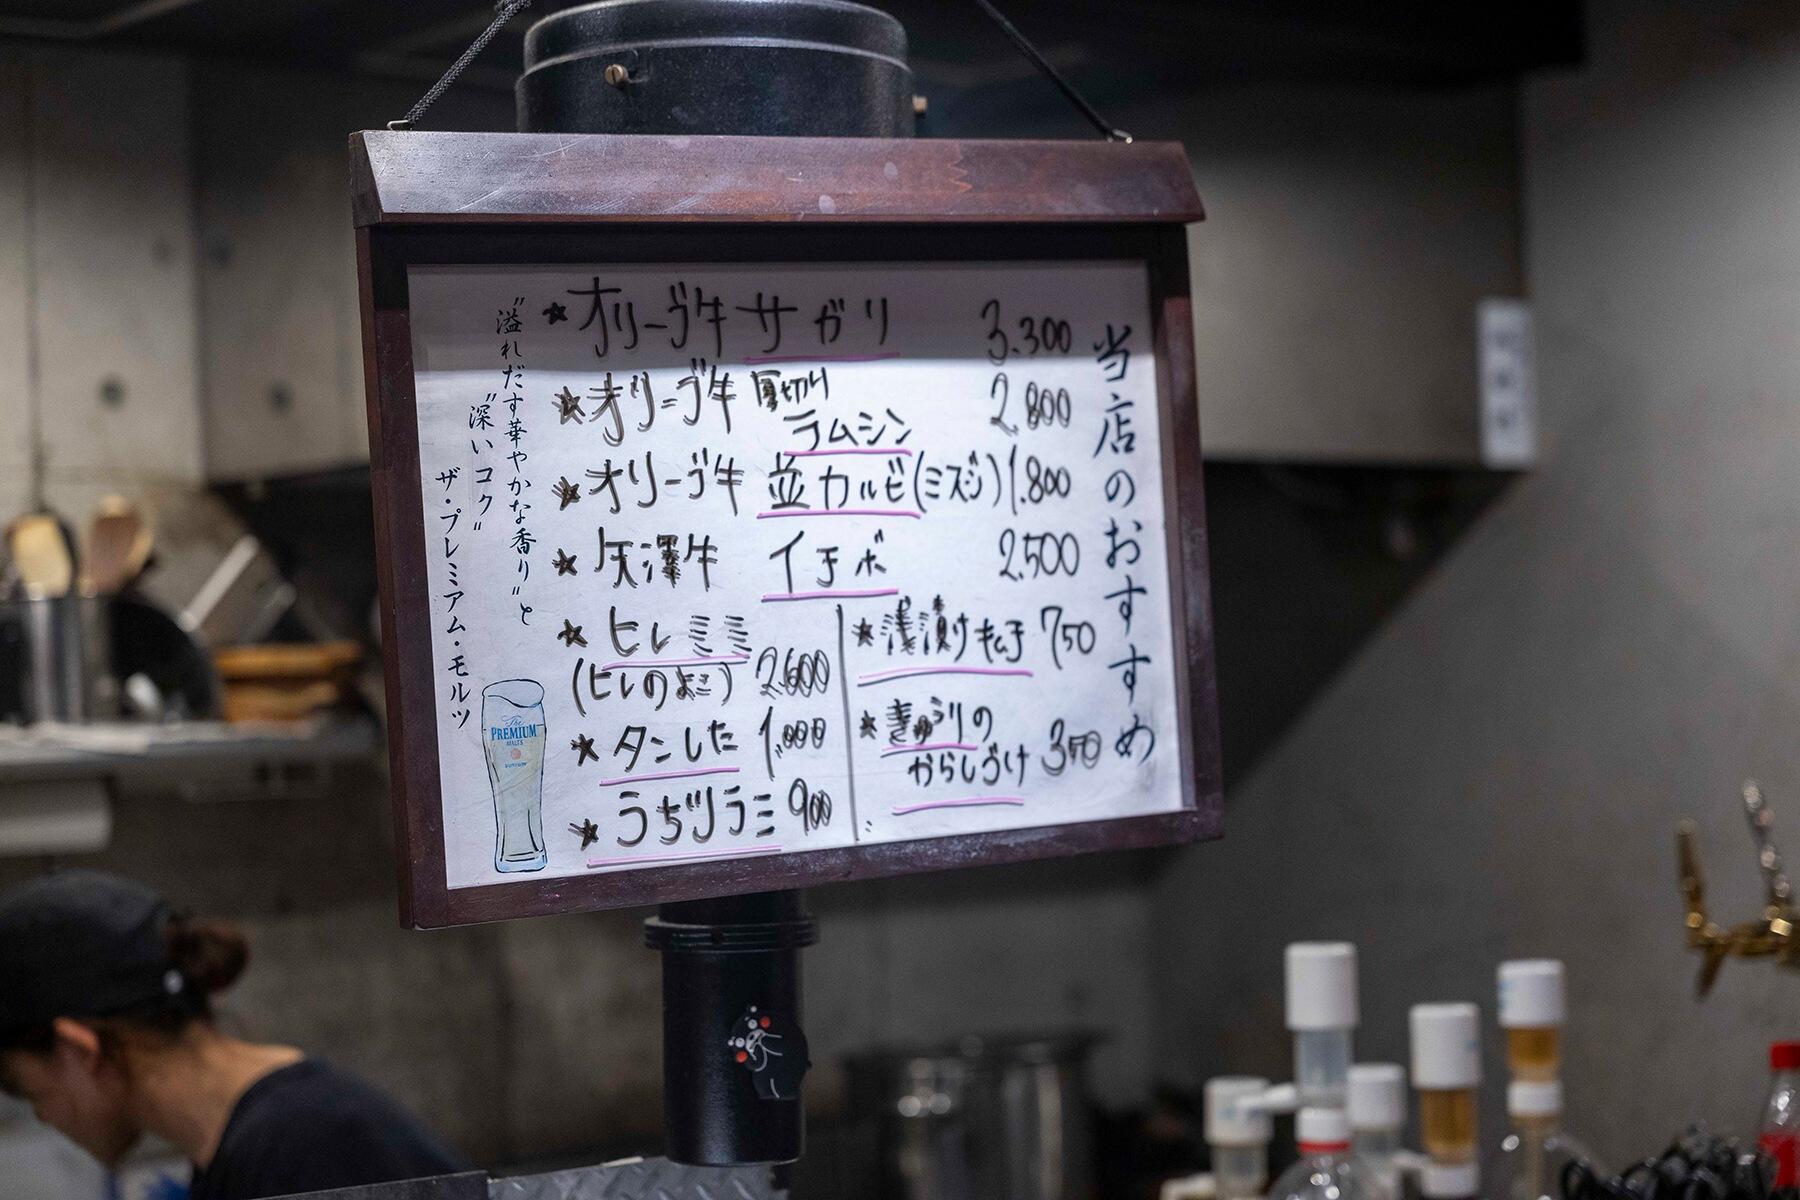 当店のおすすめ
★オリーブ牛 サガリ 3.300
★オリーブ牛 厚切り 2.800
ラムシン
★オリーブ牛 並カルビ(ミスジ) 1.800
★矢澤牛 イチボ 2.500
★ヒレミミ
(ヒレのよこ) 2.600
★タンした 1.000
★うちヅラミ 900
★浅漬けキムチ 750
★きゅうりの
からしづけ 350
"溢れだす華やかな香り"と
"深いコク"
ザ・プレミアム・モルツ
The
PREMIUM
MALT'S
SUNTORY